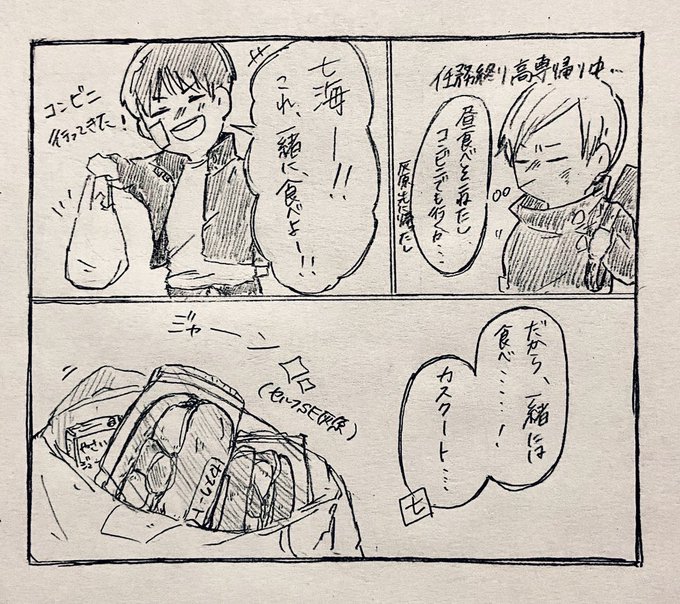 任務終り高専帰り中…
昼食べそこねたし、
コンビニでも行くか…
灰原先に帰たし
七海ー!!
これ、一緒に、食べよー!!
コンビニ
行ってきた!
だから、一緒には
食べ……!
カスクート……
七
ジャーン
(セルフSE灰原)
やさい